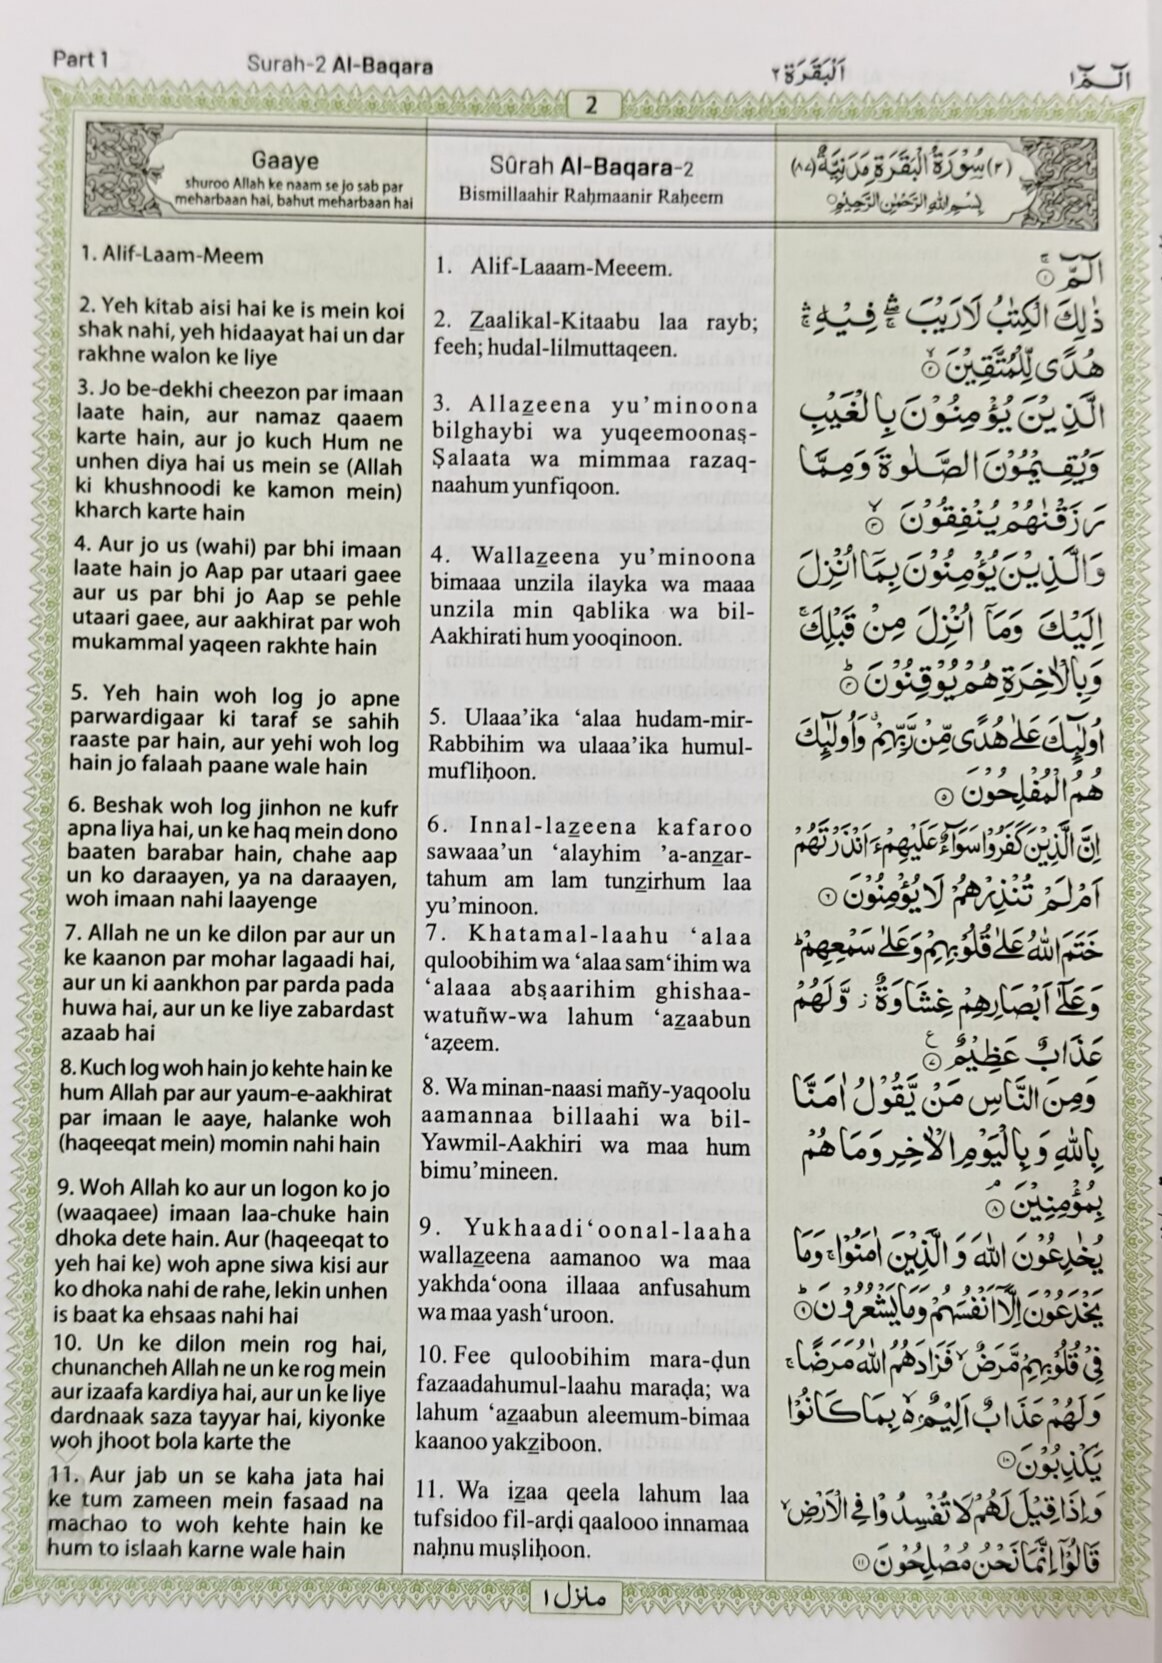 Part 1
Surah-2 Al-Baqara
اَلْبَقَرَة ٢
الٓمّٓ ١
2
Gaaye
shuroo Allah ke naam se jo sab par
meharbaan hai, bahut meharbaan hai
1. Alif-Laam-Meem
2. Yeh kitab aisi hai ke is mein koi
shak nahi, yeh hidaayat hai un dar
rakhne walon ke liye
3. Jo be-dekhi cheezon par imaan
laate hain, aur namaz qaaem
karte hain, aur jo kuch Hum ne
unhen diya hai us mein se (Allah
ki khushnoodi ke kamon mein)
kharch karte hain
4. Aur jo us (wahi) par bhi imaan
laate hain jo Aap par utaari gaee
aur us par bhi jo Aap se pehle
utaari gaee, aur aakhirat par woh
mukammal yaqeen rakhte hain
5. Yeh hain woh log jo apne
parwardigaar ki taraf se sahih
raaste par hain, aur yehi woh log
hain jo falaah paane wale hain
6. Beshak woh log jinhon ne kufr
apna liya hai, un ke haq mein dono
baaten barabar hain, chahe aap
un ko daraayen, ya na daraayen,
woh imaan nahi laayenge
7. Allah ne un ke dilon par aur un
ke kaanon par mohar lagaadi hai,
aur un ki aankhon par parda pada
huwa hai, aur un ke liye zabardast
azaab hai
8. Kuch log woh hain jo kehte hain ke
hum Allah par aur yaum-e-aakhirat
par imaan le aaye, halanke woh
(haqeeqat mein) momin nahi hain
9. Woh Allah ko aur un logon ko jo
(waaqaee) imaan laa-chuke hain
dhoka dete hain. Aur (haqeeqat to
yeh hai ke) woh apne siwa kisi aur
ko dhoka nahi de rahe, lekin unhen
is baat ka ehsaas nahi hai
10. Un ke dilon mein rog hai,
chunancheh Allah ne un ke rog mein
aur izaafa kardiya hai, aur un ke liye
dardnaak saza tayyar hai, kiyonke
woh jhoot bola karte the
11. Aur jab un se kaha jata hai
ke tum zameen mein fasaad na
machao to woh kehte hain ke
hum to islaah karne wale hain
Sûrah Al-Baqara-2
Bismillaahir Raḥmaanir Raḥeem
1. Alif-Laaam-Meeem.
2. Z̲aalikal-Kitaabu laa rayb;
feeh; hudal-lilmuttaqeen.
3. Allaz̲eena yu’minoona
bilghaybi wa yuqeemoonaṣ-
Ṣalaata wa mimmaa razaq-
naahum yunfiqoon.
4. Wallaz̲eena yu’minoona
bimaaa unzila ilayka wa maaa
unzila min qablika wa bil-
Aakhirati hum yooqinoon.
5. Ulaaa’ika ‘alaa hudam-mir-
Rabbihim wa ulaaa’ika humul-
mufliḥoon.
6. Innal-laz̲eena kafaroo
sawaaa’un ‘alayhim ’a-anz̲ar-
tahum am lam tunz̲irhum laa
yu’minoon.
7. Khatamal-laahu ‘alaa
quloobihim wa ‘alaa sam‘ihim wa
‘alaaa abṣaarihim ghishaa-
watuñw-wa lahum ‘az̲aabun
‘aẓeem.
8. Wa minan-naasi mañy-yaqoolu
aamannaa billaahi wa bil-
Yawmil-Aakhiri wa maa hum
bimu’mineen.
9. Yukhaadi‘oonal-laaha
wallaz̲eena aamanoo wa maa
yakhda‘oona illaaa anfusahum
wa maa yash‘uroon.
10. Fee quloobihim mara-ḍun
fazaadahumul-laahu maraḍa; wa
lahum ‘az̲aabun aleemum-bimaa
kaanoo yakz̲iboon.
11. Wa iz̲aa qeela lahum laa
tufsidoo fil-arḍi qaalooo innamaa
naḥnu muṣliḥoon.
(٢) سُوْرَةُ الْبَقَرَةِ مَدَنِيَّةٌ (٨٧)
بِسْمِ اللهِ الرَّحْمٰنِ الرَّحِيْمِ
الٓمّٓ ١
ذٰلِكَ الْكِتٰبُ لَا رَيْبَ ۛۚ فِيْهِ ۛۚ
هُدًى لِّلْمُتَّقِيْنَ ۙ ٢
الَّذِيْنَ يُؤْمِنُوْنَ بِالْغَيْبِ
وَيُقِيْمُوْنَ الصَّلٰوةَ وَمِمَّا
رَزَقْنٰهُمْ يُنْفِقُوْنَ ۙ ٣
وَالَّذِيْنَ يُؤْمِنُوْنَ بِمَآ اُنْزِلَ
اِلَيْكَ وَمَآ اُنْزِلَ مِنْ قَبْلِكَ ۚ
وَبِالْاٰخِرَةِ هُمْ يُوْقِنُوْنَ ؕ ٤
اُولٰٓئِكَ عَلٰى هُدًى مِّنْ رَّبِّهِمْ ۗ وَاُولٰٓئِكَ
هُمُ الْمُفْلِحُوْنَ ٥
اِنَّ الَّذِيْنَ كَفَرُوْا سَوَآءٌ عَلَيْهِمْ ءَاَنْذَرْتَهُمْ
اَمْ لَمْ تُنْذِرْهُمْ لَا يُؤْمِنُوْنَ ٦
خَتَمَ اللهُ عَلٰى قُلُوْبِهِمْ وَعَلٰى سَمْعِهِمْ ؕ
وَعَلٰٓى اَبْصَارِهِمْ غِشَاوَةٌ ز وَّلَهُمْ
عَذَابٌ عَظِيْمٌ ٧ ع
وَمِنَ النَّاسِ مَنْ يَّقُوْلُ اٰمَنَّا
بِاللهِ وَبِالْيَوْمِ الْاٰخِرِ وَمَا هُمْ
بِمُؤْمِنِيْنَ ۘ ٨
يُخٰدِعُوْنَ اللهَ وَالَّذِيْنَ اٰمَنُوْا ۚ وَمَا
يَخْدَعُوْنَ اِلَّآ اَنْفُسَهُمْ وَمَا يَشْعُرُوْنَ ؕ ٩
فِيْ قُلُوْبِهِمْ مَّرَضٌ ۙ فَزَادَهُمُ اللهُ مَرَضًا ۚ
وَلَهُمْ عَذَابٌ اَلِيْمٌ ۢ ۙ بِمَا كَانُوْا
يَكْذِبُوْنَ ١٠
وَاِذَا قِيْلَ لَهُمْ لَا تُفْسِدُوْا فِي الْاَرْضِ ۙ
قَالُوْٓا اِنَّمَا نَحْنُ مُصْلِحُوْنَ ١١
منزل ١